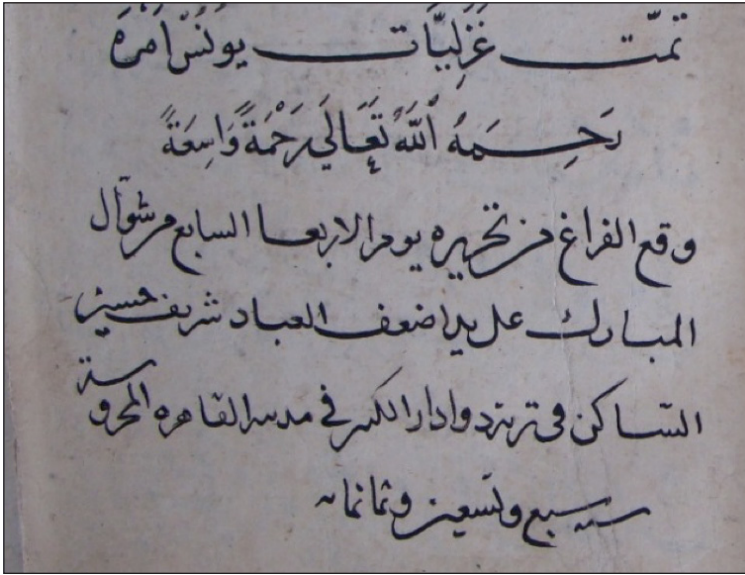 تمّت غزليّات يونس امره
رحمه الله تعالي رحمةً واسعةً
وقع الفراغ من تحريره يوم الاربعا السابع من شوّال
المبارك علي يد اضعف العباد شريف حسين
السّاكن في تربة دوادار الكبير في مدينة القاهره المحروسة
سنة سبع وتسعين وثمانمائه